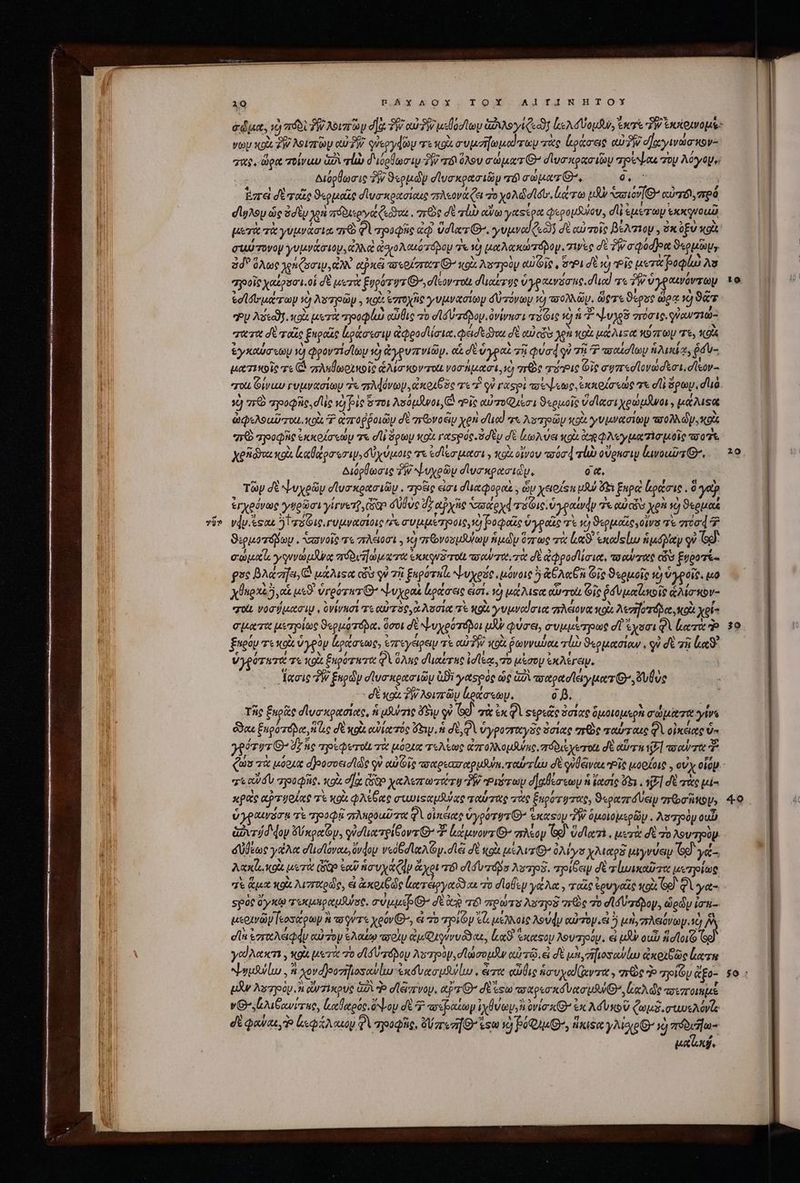 20 ΠΑΥΛΟΥ ΤΟΥ ΑΙΓΙΝΗΤΟΥ
σῶμα, καὶ περὶ τῶν λοιπῶν διὰ τῶν αὐτῶν μεθόδων ἀναλογίζεσθαι κελεύομεν, ἐκ τε τῶν ἐκκρινομέ-
νων καὶ τῶν λοιπῶν αὐτῶν ἐνεργῶν τε καὶ συμπτωμάτων τὰς κράσεις αὐτῶν διαγινώσκον-
τας. ὥρα τοίνυν ἐπὶ τὴν διόρθωσιν τῶν τοῦ ὅλου σώματος δυσκρασιῶν τρέψαι τὸν λόγον.
Διόρθωσις τῶν θερμῶν δυσκρασιῶν τοῦ σώματος. ο.
Ἐπεὶ δὲ ταῖς θερμαῖς δυσκρασίαις πλεονάζει τὸ χολῶδες, κάτω μὲν ὑπιόντος αὐτοῦ, πρό
δηλον ὡς οὐδὲν χρὴ περιεργάζεσθαι. πρὸς δὲ τὴν ἄνω γαστέρα φερομένου, δι' ἐμέτων ἐκκενοῦν
μετὰ τὰ γυμνάσια πρὸ τῆς τροφῆς ἀφ' ὕδατος. γυμνάζεσθαι δὲ αὐτοῖς βέλτιον, οὐκ ὀξὺ καὶ
σύντονον γυμνάσιον, ἀλλὰ σχολαιότερον τε καὶ μαλακώτερον. τινὲς δὲ τῶν σφόδρα θερμῶν,
οὐδ' ὅλως χρῄζουσιν, ἀλλ' ἀρκεῖ περίπατος καὶ λουτρὸν αὐτοῖς, οἱ δὲ καὶ τοῖς μετὰ τροφὴν λου
τροῖς χαίρουσι. οἱ δὲ μετὰ ξηρότητος, δέονται διαίτης ὑγραινούσης. διὰ τε τῶν ὑγραινόντων 10
ἐδεσμάτων καὶ λουτρῶν, καὶ ἐποχῆς γυμνασίων συντόνων καὶ πολλῶν. ὥστε θέρους ὥρα καὶ θᾶτ
τον λούεσθαι. καὶ μετὰ τροφὴν αὖθις τὸ δεύτερον. ὀνίνησι τούτοις καὶ ἡ τοῦ ψυχροῦ πόσις. ἐναντιώ-
τατα δὲ ταῖς ξηραῖς κράσεσιν ἀφροδίσια. φείδεσθαι δὲ αὐτοὺς χρὴ καὶ μάλιστα κόπων τε, καὶ
ἐγκαύσεων καὶ φροντίδων καὶ ἀγρυπνιῶν. αἱ δὲ ὑγραὶ τῇ φύσει ἐν τῇ τῶν παίδων ἡλικίᾳ, ῥευ-
ματικοῖς τε καὶ πληθωρικοῖς ἁλίσκονται νοσήμασι, καὶ πρὸς τούτοις τοῖς σηπεδονώδεσι. δέον-
ται τοίνυν γυμνασίων τε πλειόνων, ἀκριβοῦς τε τῆς ἐν γαστρὶ πέψεως, ἐκκρίσεώς τε δι' οὔρων, διὰ
καὶ πρὸ τροφῆς, δὶς καὶ τρὶς ἔστι λουόμενοι, καὶ τοῖς αὐτοφυέσι θερμοῖς ὕδασι χρώμενοι, μάλιστα
ὠφελοῦνται. καὶ τῶν ἀπορροιῶν δὲ προνοεῖν χρὴ διὰ τε λουτρῶν καὶ γυμνασίων πολλῶν, καὶ
πρὸ τροφῆς ἐκκρίσεων τε δι' οὔρων καὶ γαστρός. οὐδὲν δὲ κωλύει καὶ ἀποφλεγματισμοῖς ποτε
χρῆσθαι καὶ καθάρσεσιν, εὐχύμοις τε ἐδέσμασι, καὶ οἴνου πόσει τὴν οὔρησιν κινοῦντος. 20
Διόρθωσις τῶν ψυχρῶν δυσκρασιῶν. οα.
Τῶν δὲ ψυχρῶν δυσκρασιῶν, τρεῖς εἰσι διαφοραί, ὧν χειρίστη μὲν ἔστι ξηρὰ κρᾶσις. ὃ γὰρ
ἐν χρόνῳ γήρωσι γίνεται, εὐθὺς ἐξ ἀρχῆς ὑπάρχει τούτοις. ὑγραίνειν τε αὐτοὺς χρὴ καὶ θερμαί
νειν. ἔσται δὲ τούτοις. γυμνασίοις τε συμμέτροις, καὶ τροφαῖς ὑγραῖς τε καὶ θερμαῖς, οἴνου τε πόσει τῶν
θερμοτέρων, ὕπνοις τε πλείοσι, καὶ προνοουμένων ἡμῶν ὅπως τὰ καθ' ἑκάστην ἡμέραν ἐν τῷ
σώματι γεννώμενα περιττώματα ἐκκενοῦται πάντα. τὰ δὲ ἀφροδίσια, πάντας τοὺς ξηροτέ-
ρους βλάπτει, καὶ μάλιστα τοὺς ἐν τῇ ξηρότητι ψυχρούς. μόνοις δὲ ἀβλαβῆ τοῖς θερμοῖς καὶ ὑγροῖς. μο
χθηραὶ δὲ, αἱ μεθ' ὑγρότητος ψυχραὶ κράσεις εἰσί. καὶ μάλιστα αὗται τοῖς ῥευματικοῖς ἁλίσκον-
ται νοσήμασιν, ὀνίνησί τε αὐτούς, ἀλουσία τε καὶ γυμνάσια πλείονα καὶ λεπτότερα, καὶ χρί-
σματα μετρίως θερμότερα. ὅσοι δὲ ψυχρότεροι μὲν φύσει, συμμέτρως δὲ ἔχουσι κατὰ τὸ 30
ξηρόν τε καὶ ὑγρὸν κράσεως, ἐπεγείρειν τε αὐτῶν καὶ ῥωννύναι τὴν θερμασίαν, ἐν δὲ τῇ καθ'
ὑγρότητά τε καὶ ξηρότητα τῆς ὅλης διαίτης ἰδέᾳ, τὸ μέσον ἐκλέγειν.
Ἴασις τῶν ξηρῶν δυσκρασιῶν ἐπὶ γαστρὸς ὡς ἐπὶ παραδείγματος, εὐθὺς
δὲ καὶ τῶν λοιπῶν κράσεων. οβ.
Τῆς ξηρᾶς δυσκρασίας, ἡ μέν τις ἔστιν ἐν τῷ τὰ ἐκ τῆς στερεᾶς οὐσίας ὁμοιομερῆ σώματα γίνε
σθαι ξηρότερα, ἥτις δὲ καὶ ἀνίατός ἐστιν. ἡ δὲ, τῆς ὑγροπαγοῦς οὐσίας πρὸς ταύταις τῆς οἰκείας ὑ-
γρότητος ἐξ ἧς τρέφεται τὰ μόρια τελέως ἀπολλομένης. περιέχεται δὲ αὕτη κατὰ πάντα τοῦ
ζώου τὰ μόρια δροσοειδῶς ἐν αὐτοῖς παρεσπαρμένη. ταύτην δὲ ἐνθεῖναι τοῖς μορίοις, οὐχ οἷόν
τε ἄνευ τροφῆς. καὶ διὰ τοῦτο χαλεπωτάτη τῶν τοιούτων διαθέσεων ἡ ἴασίς ἐστι. κατὰ δὲ τὰς μι-
κρὰς ἀρτηρίας τε καὶ φλέβας συνισταμένας ταύτας τὰς ξηρότητας, θεραπεύειν προσῆκον, 40
ὑγραίνουσῃ τε τροφῇ πληροῦντα τῆς οἰκείας ὑγρότητος ἕκαστον τῶν ὁμοιομερῶν. λουτρὸν οὖν
ἐπιτήδειον εὔκρατον, ἐνδιατρίβοντος τοῦ κάμνοντος πλέον τῷ ὕδατι. μετὰ δὲ τὸ λουτρὸν
εὐθέως γάλα διδόναι, ὄνειον νεόβδαλτον. δεῖ δὲ καὶ μέλιτος ὀλίγου χλιαροῦ μιγνύειν τῷ γά-
λακτι, καὶ μετὰ τοῦτο ἐᾶν ἡσυχάζειν ἄχρι τοῦ δευτέρου λουτροῦ. τρίβειν δὲ τηνικαῦτα μετρίως
τε ἅμα καὶ λιπαρῶς, εἰ ἀκριβῶς κατειργάσθαι τὸ δοθὲν γάλα, ταῖς ἐρυγαῖς καὶ τῷ τῆς γα-
στρὸς ὄγκῳ τεκμηραμένους. σύμμετρος δὲ ἀπὸ τοῦ πρώτου λουτροῦ πρὸς τὸ δεύτερον, ὡρῶν ἰση-
μερινῶν τεσσάρων ἢ πέντε χρόνος, εἰ τὸ τρίτον ἔτι μέλλοις λούειν αὐτόν. εἰ δὲ μή, πλειόνων. καὶ
δὴ ἐπαλείφειν αὐτὸν ἐλαίῳ πρὶν ἀμφιέννυσθαι, καθ' ἕκαστον λουτρόν. εἰ μὲν οὖν ἥδοιτο τῷ
γάλακτι, καὶ μετὰ τὸ δεύτερον λουτρόν, δώσομεν αὐτῷ. εἰ δὲ μή, πτισάνην ἀκριβῶς κατη
ψημένην, ἢ χονδροπτισάνην ἐσκευασμένην, εἶτα αὖθις ἡσυχάζοντα, πρὸς τὸ τρίτον ἄξο- 50
μεν λουτρόν. ἢ ἄντικρυς ἐπὶ τὸ δεῖπνον. ἄρτος δὲ ἔστω παρεσκευασμένος, καλῶς πεποιημέ
νος, κλιβανίτης, καθαρός. ὄψον δὲ τῶν πετραίων ἰχθύων, ἢ ὀνίσκος ἐκ λευκοῦ ζωμοῦ. συνελόντι
δὲ φάναι, τὸ κεφάλαιον τῆς τροφῆς, εὔπεπτος ἔστω καὶ τρόφιμος, ἥκιστα γλίσχρος καὶ περιττω-
ματική.